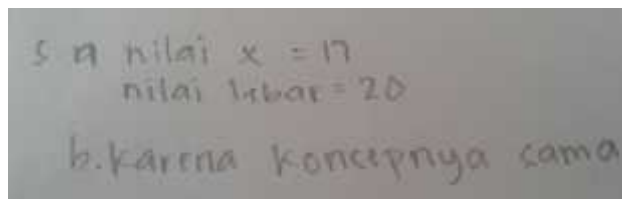 5 a nilai x = 17
nilai lebar = 20
b. karena koncepnya sama